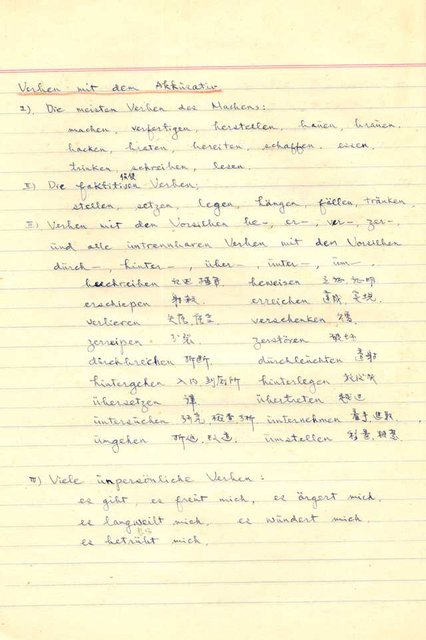 Verben mit dem Akkusativ
I). Die meisten Verben des Machens:
machen, verfertigen, herstellen, bauen, brauen,
backen, braten, bereiten, schaffen, essen,
trinken, schreiben, lesen.
II) Die faktitiven Verben:
stellen, setzen, legen, hängen, fällen, tränken.
III) Verben mit den Vorsilben be–, er–, ver–, zer–,
und alle untrennbaren Verben mit den Vorsilben
durch–, hinter–, über–, unter–, um–
beschreiben beweisen 证明
erschiepen 射殺 erreichen 達成
verlieren verschenken
zerreipen zerstören 破坏
durchbrechen 折断 durchleuchten 透射
hintergehen hinterlegen
übersetzen 譯 übertreten
untersuchen 研究, 檢查 unternehmen 着手
umgehen umstellen
IV) Viele unpersönliche Verben:
es gibt, es freut mich, es ärgert mich.
es langweilt mich, es wundert mich.
es betrübt mich.